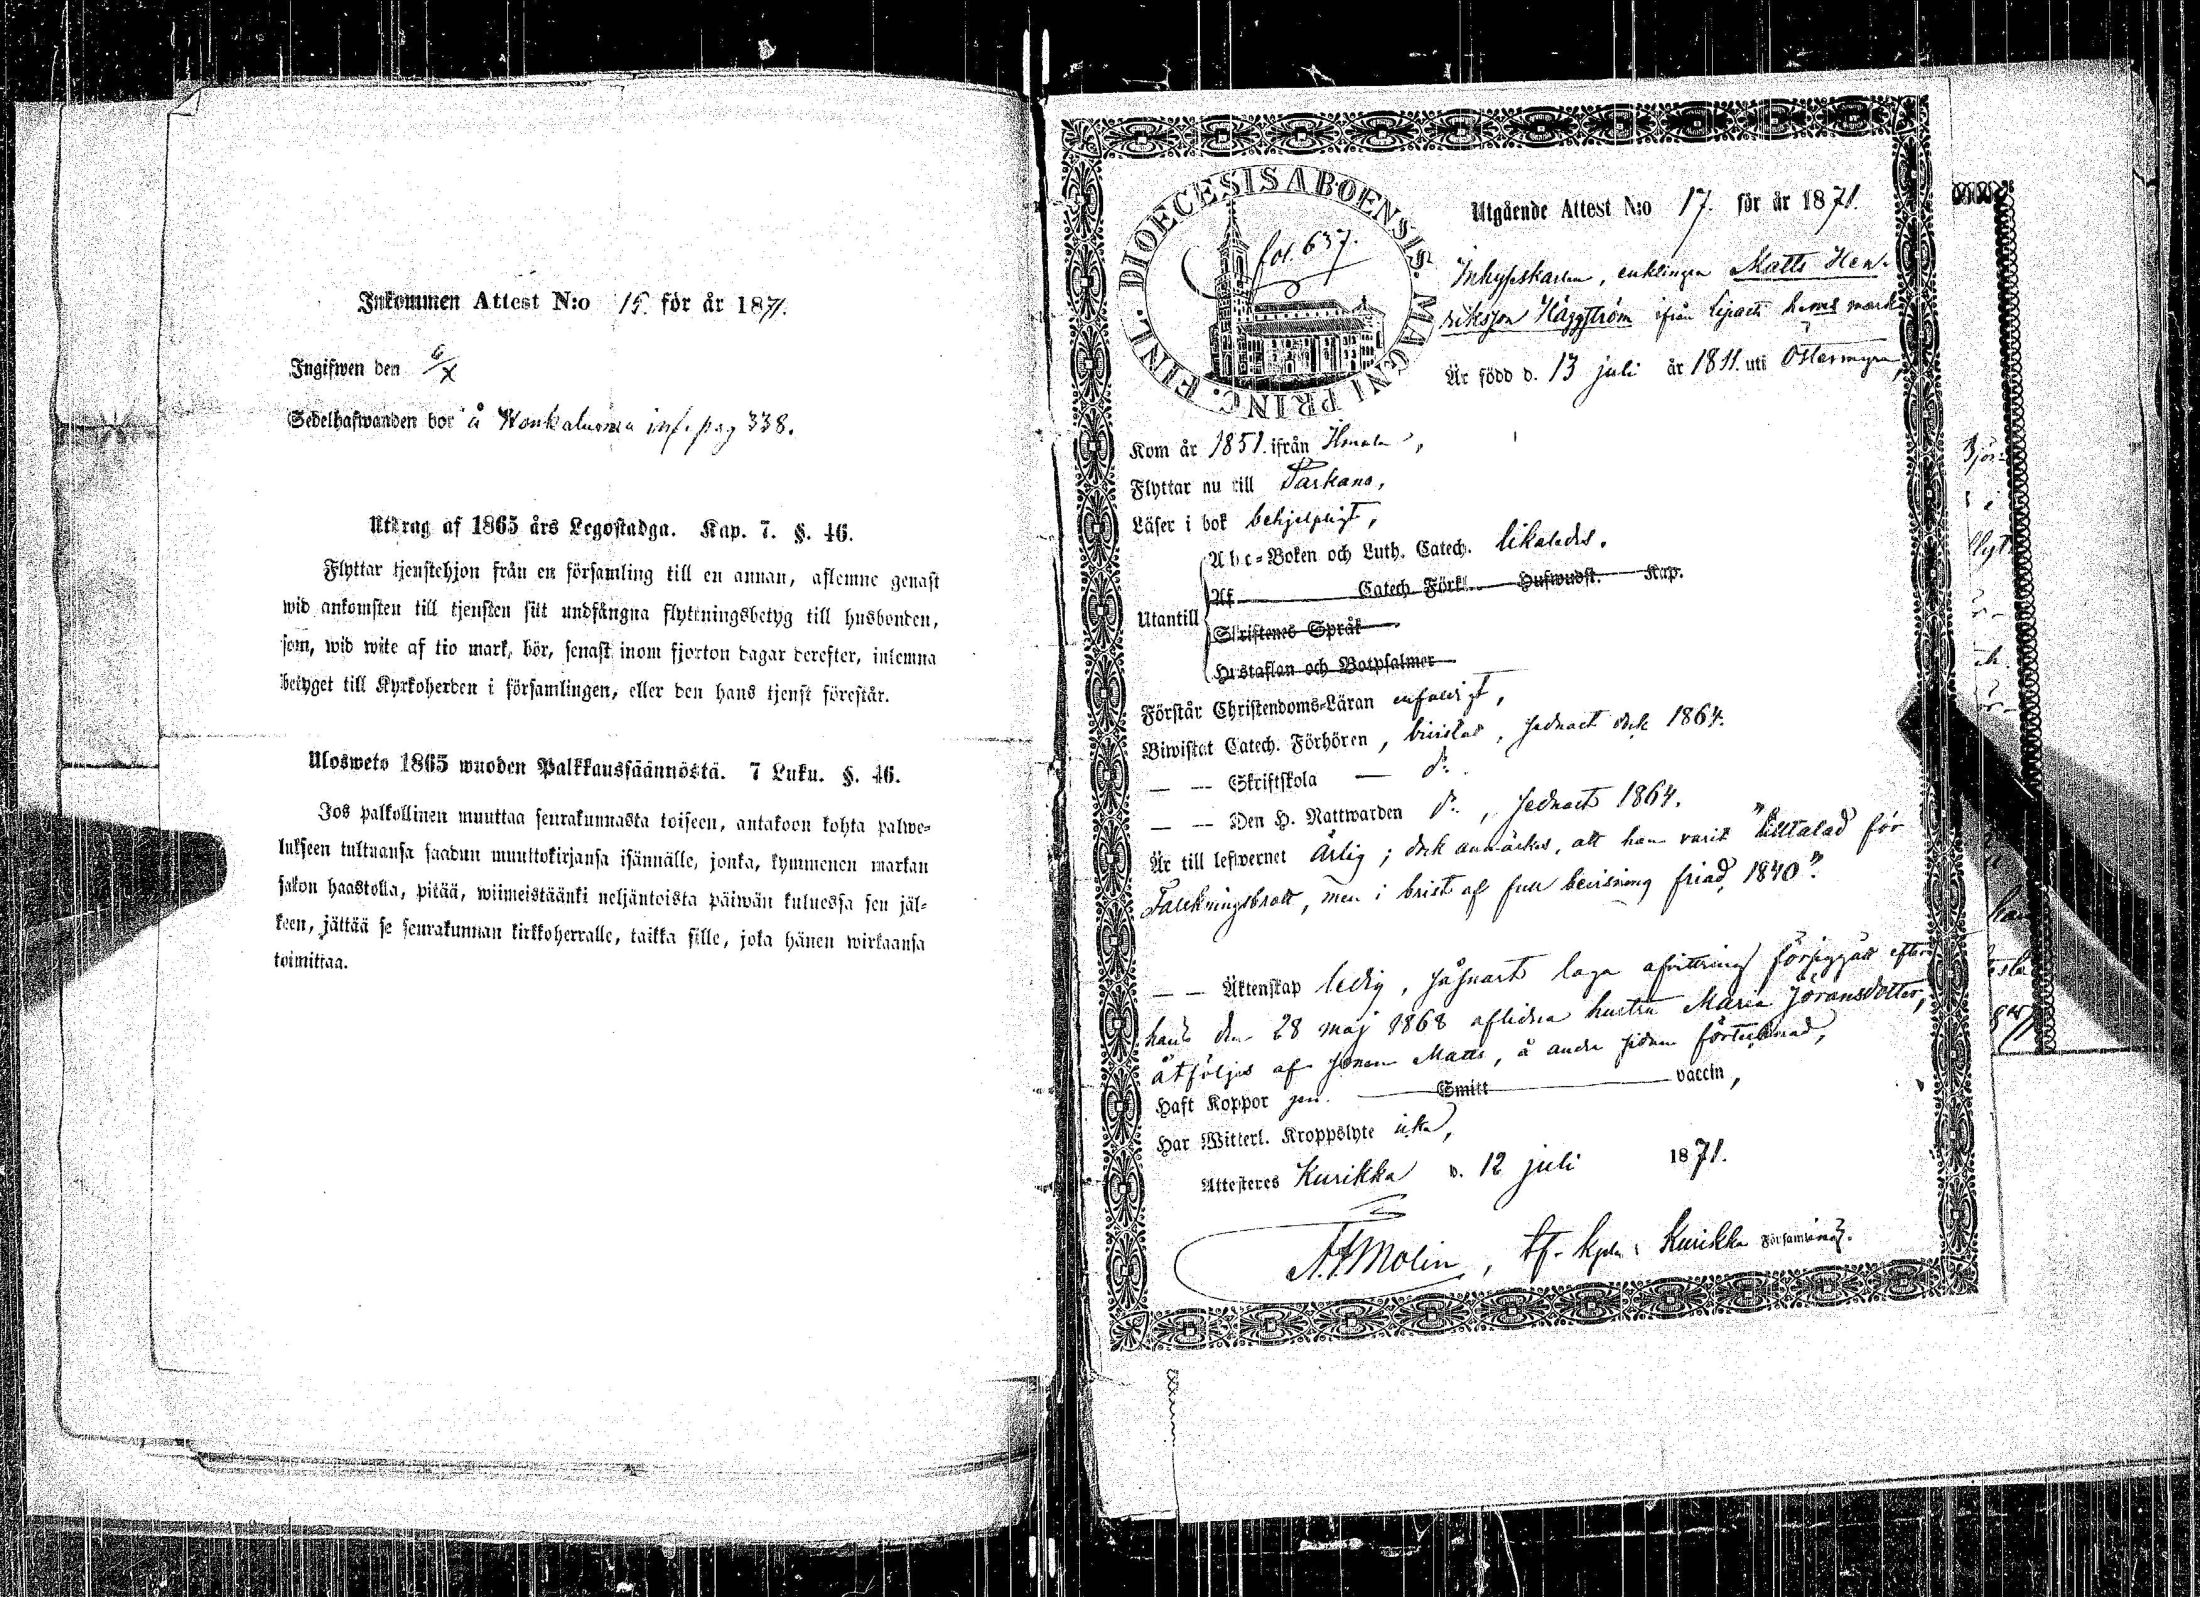 Inkommen Attest N:o 15. för år 1871.
Ingifwen den 6/X
Sedelhafwanden bor å Konkaluoma inf. pag 338.
Utdrag af 1865 års Legostadga. Kap. 7. §. 46.
Flyttar tjenstehjon från en församling till en annan, aflemne genast
wid ankomsten till tjensten sitt undfångna flyttningsbetyg till husbonden,
som, wid wite af tio mark, bör, senast inom fjorton dagar derefter, inlemna
betyget till Kyrkoherden i församlingen, eller den hans tjenst förestår.
Ulosweto 1865 wuoden Palkkaussäännöstä. 7 Luku. §. 46.
Jos palkollinen muuttaa seurakunnasta toiseen, antakoon kohta palwe-
lukseen tultuansa saadun muuttokirjansa isännälle, jonka, kymmenen markan
sakon haastolla, pitää, wiimeistäänki neljäntoista päiwän kuluessa sen jäl-
keen, jättää se seurakunnan kirkkoherralle, taikka sille, joka hänen wirkaansa
toimittaa.
DIOECESIS ABOENSIS. MAGNI PRINC. FINL.
fol. 637.
Utgående Attest N:o 17. för år 1871.
Inhyseskarlen, enklingen Matts Hen-
riksson Häggström ifrån hems mark
Är född d. 13 juli år 1811. uti Östermyra,
Kom år 1851. ifrån
Flyttar nu till Parkano,
Läser i bok behjelpligt,
Utantill
Abc-Boken och Luth. Catech. likaledes.
Af Catech. Förkl. Hufwudst. Kap.
Skriftenes Språk
Hustaflan och Botpsalmer
Förstår Christendoms-Läran enfaldigt,
Biwistat Catech. Förhören, bivistat, senast 1864.
— — Skriftskola — d:o
— — Den H. Nattwarden d:o, senast 1864.
Är till lefwernet Ärlig; dock anmärkes, att han varit "tilltalad för
Falckningsbrott, men i brist af full bevisning friad, 1840".
— — Äktenskap ledig, såsnart laga afvittring försiggått efter
hans den 28 maj 1868 aflidna hustru Maria Jöransdotter,
åtföljes af sonen Matts, å andra sidan förtecknad,
Haft Koppor jm. Smitt vaccin,
Har Witterl. Kroppslyte icke,
Attesteres Kurikka d. 12 juli 1871.
A. F. Molin, tf. kpln i Kurikka Församling.